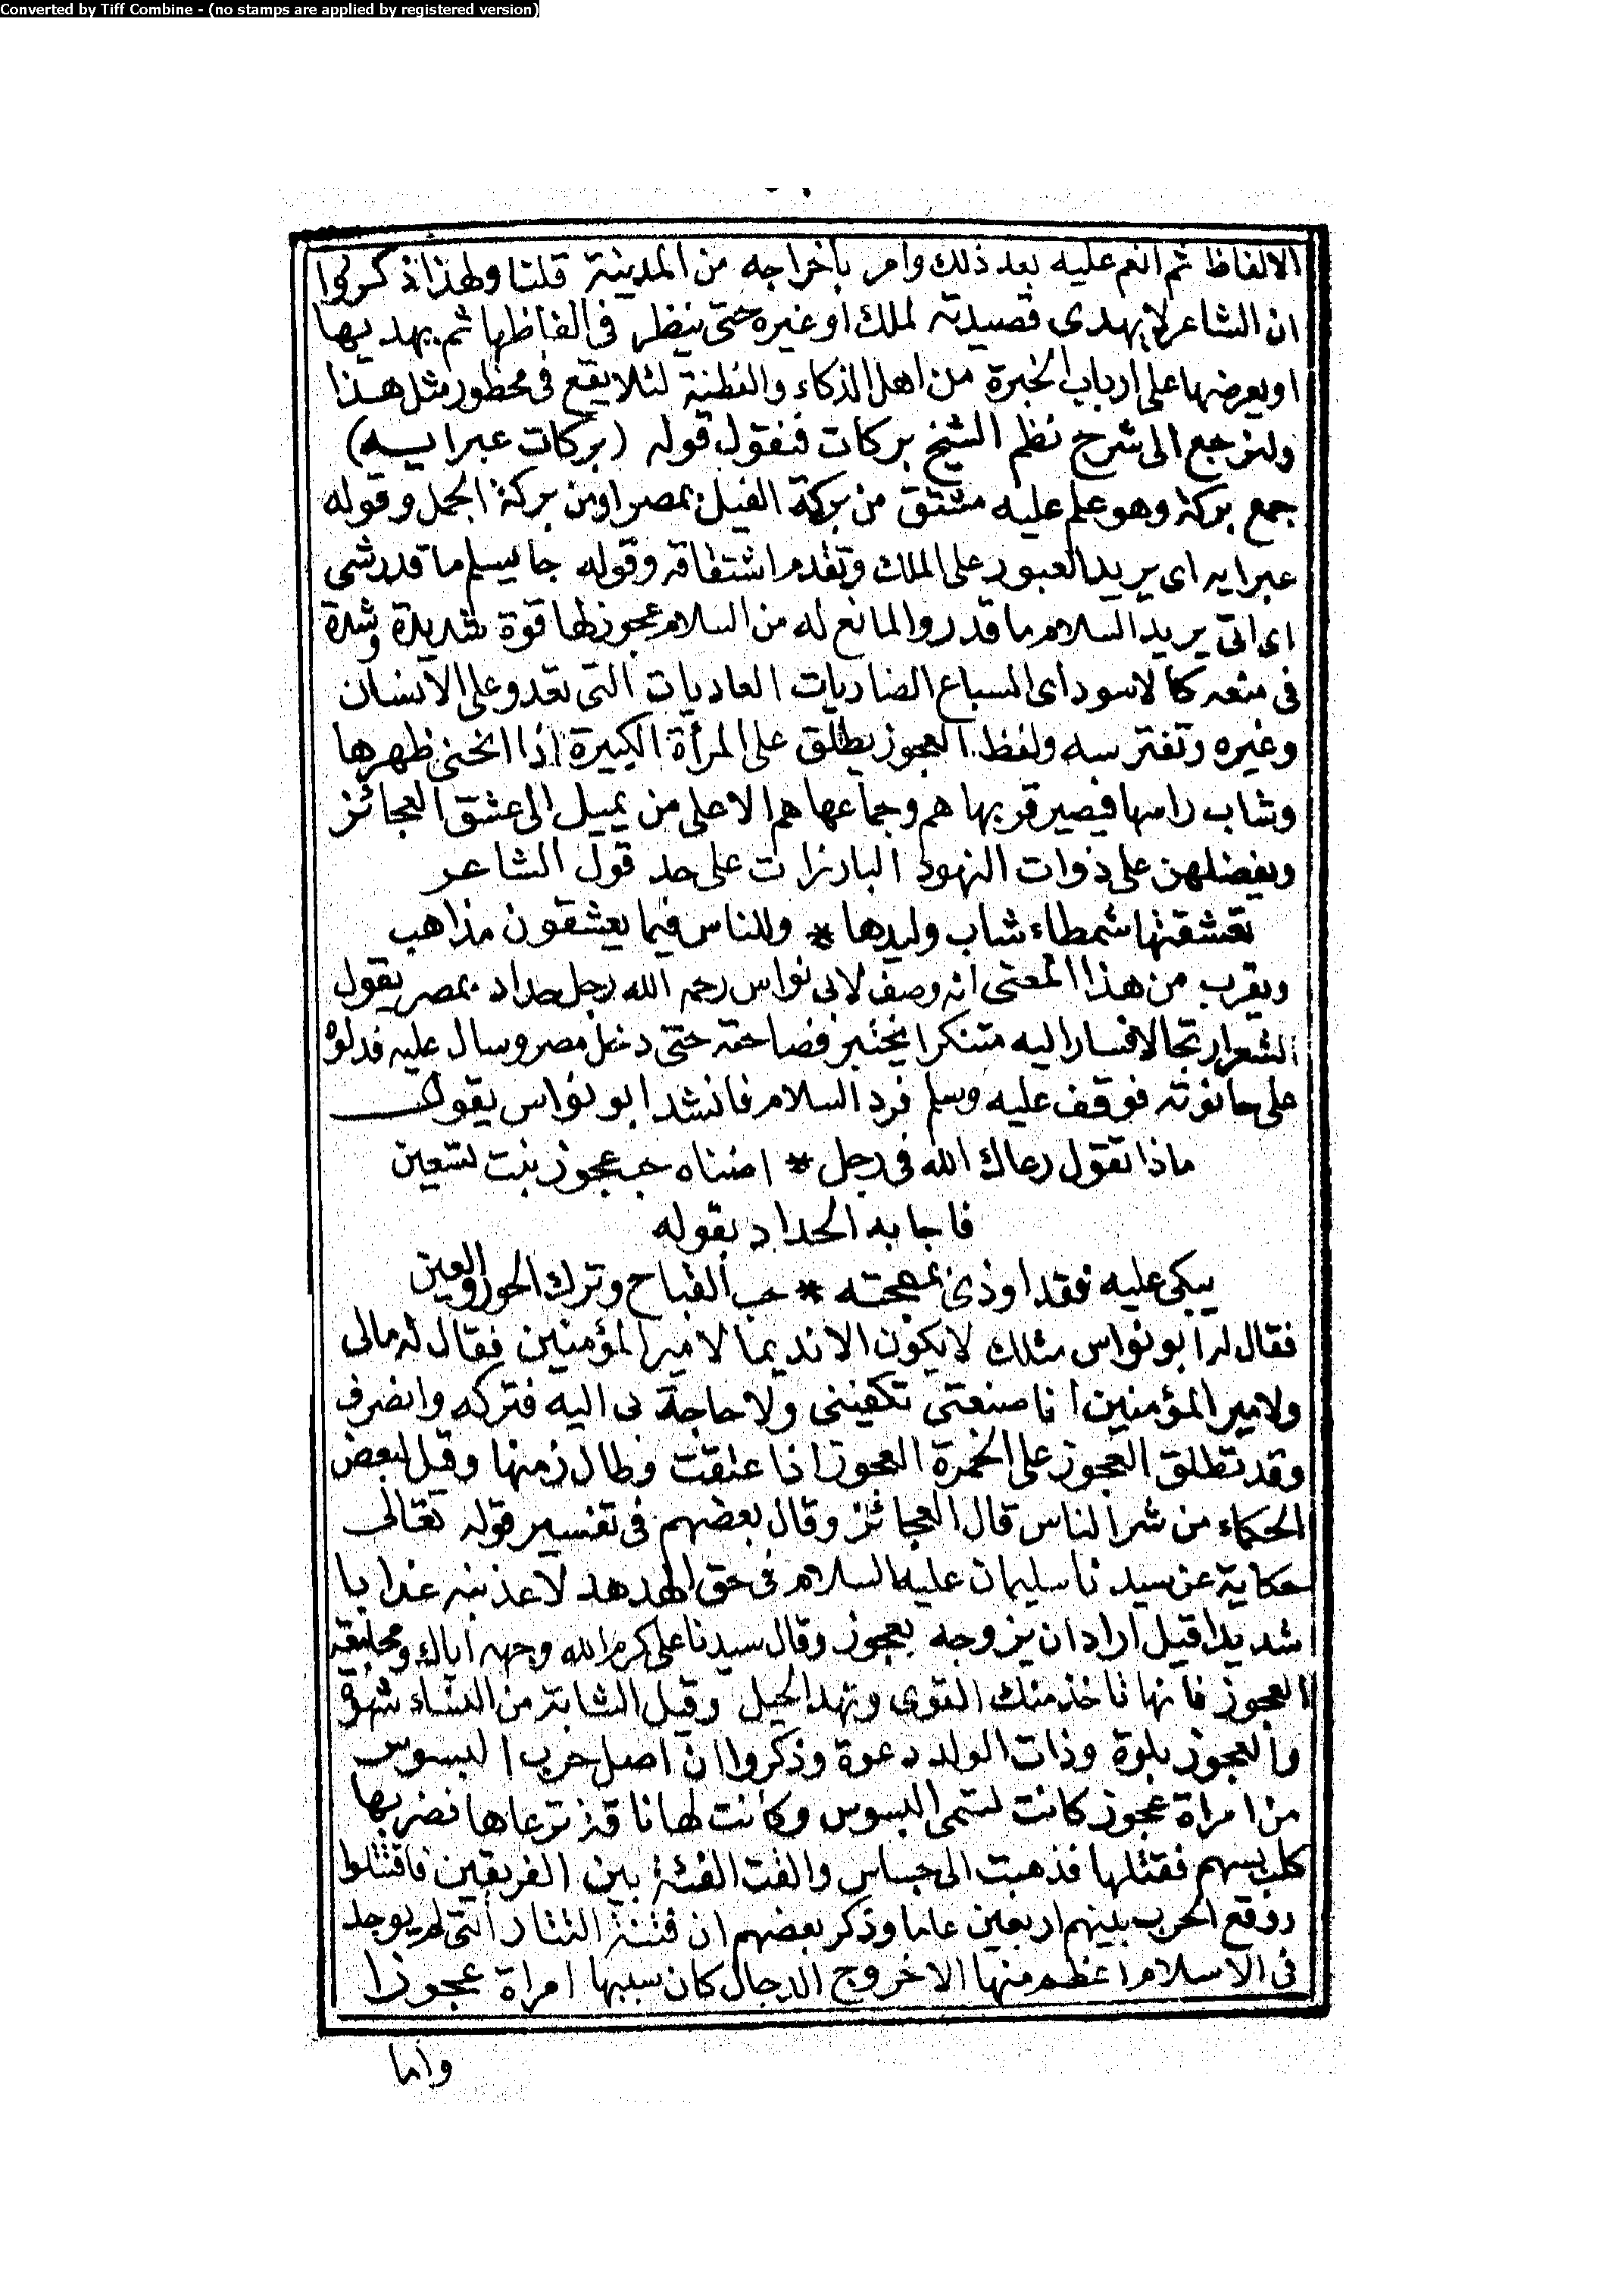 Converted by Tiff Combine - (no stamps are applied by registered version)
الالفاظ ثم انعم عليه بعد ذلك وامر باخراجه من المدينة قلنا ولهذا ذكروا
ان الشاعر لا يهدى قصيدته لملك او غيره حتى ينظر فى الفاظها ثم يهديها
او يعرضها على ارباب الخبرة من اهل الذكاء والفطنة لئلا يقع فى محظور مثل هذا
ولنرجع الى شرح نظم الشيخ بركات فنقول قوله (بركات عبرايه)
جمع بركة وهو علم عليه مشتق من بركة الفيل بمصر او من بركة الجمل وقوله
عبرايه اى يريد العبور على الملك وتقدم اشتقاقه وقوله جا يسلم ما قدرشى
اى اتى يريد السلام ما قدر والمانع له من السلام عجوز لها قوة شديدة وشدة
فى منعه كالاسود اى السباع الضاريات العاديات التى تعدو على الانسان
وغيره وتفترسه ولفظ العجوز يطلق على المرأة الكبيرة اذا انحنى ظهرها
وشاب راسها فيصير قربها هم وجماعها هم الا على من يميل الى عشق العجائز
ويفضلهن على ذوات النهود البارزات على حد قول الشاعر
تعشقتها شمطاء شاب وليدها * وللناس فيما يعشقون مذاهب
ويقرب من هذا المعنى انه وصف لابى نواس رحمه الله رجل حداد بمصر يقول
الشعر ارتجالا فسار اليه متنكرا يختبر فصاحته حتى دخل مصر وسال عليه فدلوه
على حانوته فوقف عليه وسلم فرد السلام فانشد ابو نواس يقول
ماذا تقول رعاك الله فى رجل * اضناه حب عجوز بنت تسعين
فاجابه الحداد بقوله
يبكى عليه فقد اوذى بمهجته * حب القباح وترك الحور والعين
فقال له ابو نواس مثلك لا يكون الا نديما لامير المؤمنين فقال له مالى
ولامير المؤمنين انا صنعتى تكفينى ولا حاجة لى اليه فتركه وانصرف
وقد تطلق العجوز على الخمرة العجوز اذا عتقت وطال زمنها وقيل لبعض
الحكماء من شر الناس قال العجائز وقال بعضهم فى تفسير قوله تعالى
حكاية عن سيدنا سليمان عليه السلام فى حق الهدهد لاعذبنه عذابا
شديدا قيل اراد ان يزوجه بعجوز وقال سيدنا على كرم الله وجهه اياك
العجوز فانها تاخذ منك القوى وتهد الحيل وقيل الشابة من النساء شهوة
والعجوز بلوة وذات الولد دعوة وذكروا ان اصل حرب البسوس
من امراة عجوز كانت تسمى البسوس وكانت لها ناقة ترعاها فضربها
كليب بسهم فقتلها فذهبت الى جساس والقت الفتنة بين الفريقين فاقتتلوا
ووقع الحرب بينهم اربعين عاما وذكر بعضهم ان فتنة التتار التى لم يوجد
فى الاسلام اعظم منها الا خروج الدجال كان سببها امراة عجوزا
واما